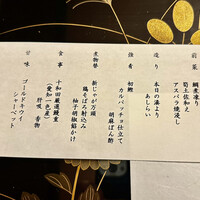 前菜
鯛煮凍り
筍土佐和え
アスパラ焼浸し
造り
本日の湊より
あしらい
強肴
初鰹
カルパッチョ仕立て
胡麻ぽん酢
煮物替
新じゃが万頭
鶏そぼろ射込み
柚子胡椒餡かけ
食事
十和田厳選鰻重
(愛知一色産)
肝吸 香物
甘味
ゴールドキウイ
シャーベット